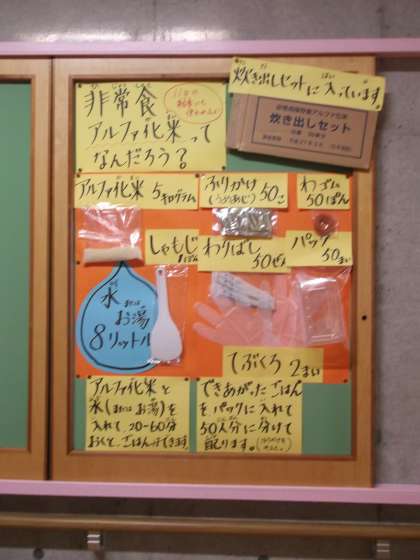 非常食
アルファ化米って
なんだろう？
炊き出しセットに入っています
炊き出しセット
アルファ化米 5キログラム
ふりかけ 50こ
わゴム 50ぽん
しゃもじ 1ぽん
わりばし 50ぜん
パック 50まい
水または
お湯
8リットル
てぶくろ 2まい
アルファ化米と
水(またはお湯)を
入れて、20-60分
おくと、ごはんができます。
できあがったごはん
をパックに入れて
50人分に分けて
配ります。